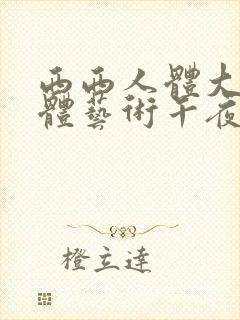 西西人體大
體藝術午夜
橙立達